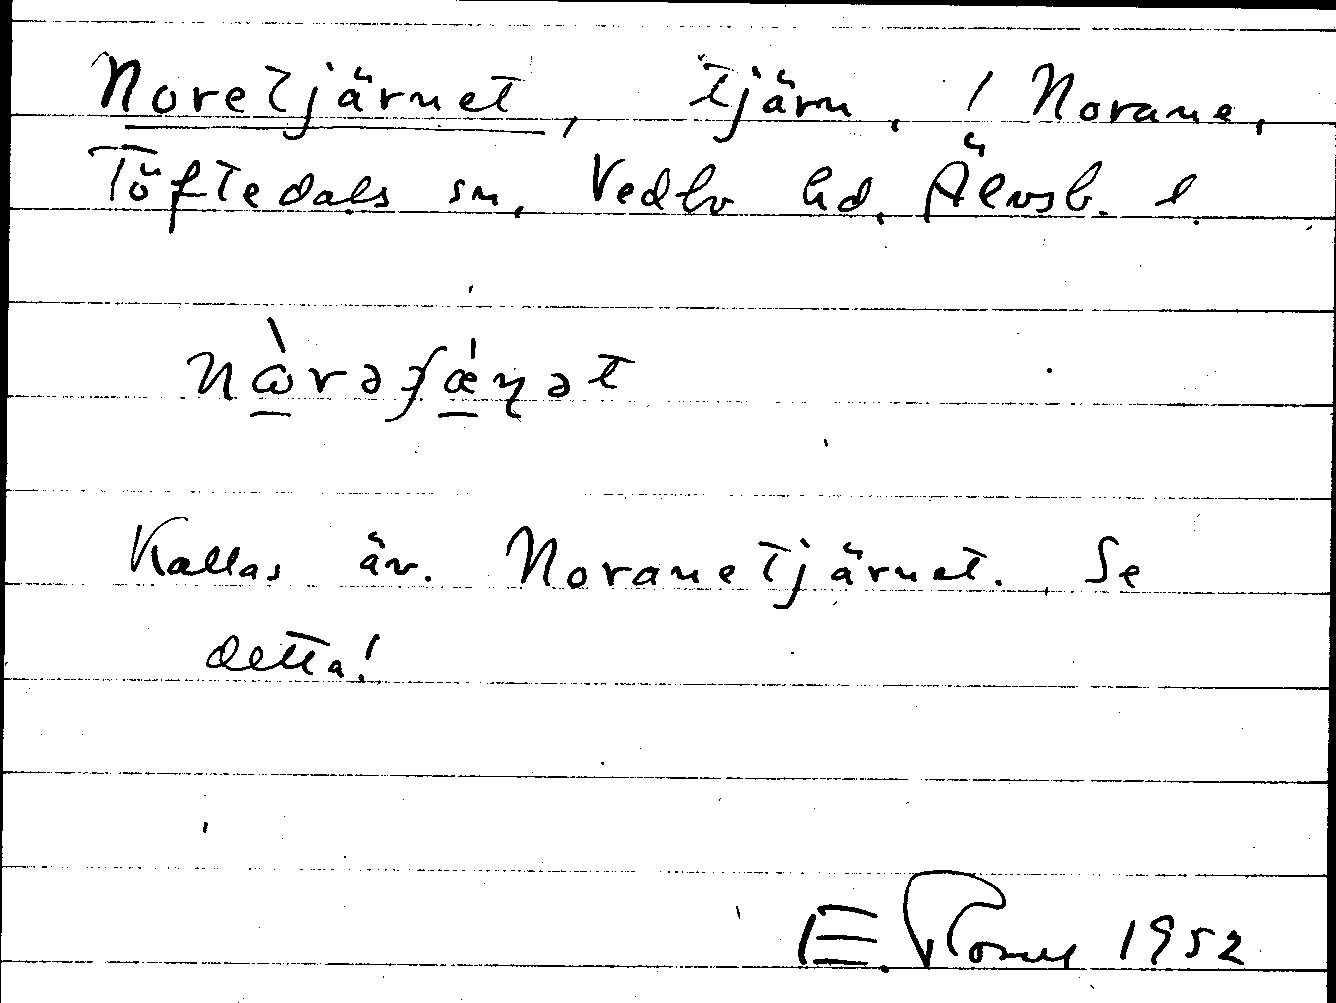 Noretjärnet, tjärn, / Norane,
Töftedals sn, Vedbo hd, Älvsb. l.
Kallas äv. Noranetjärnet. Se
detta!
E. 1952